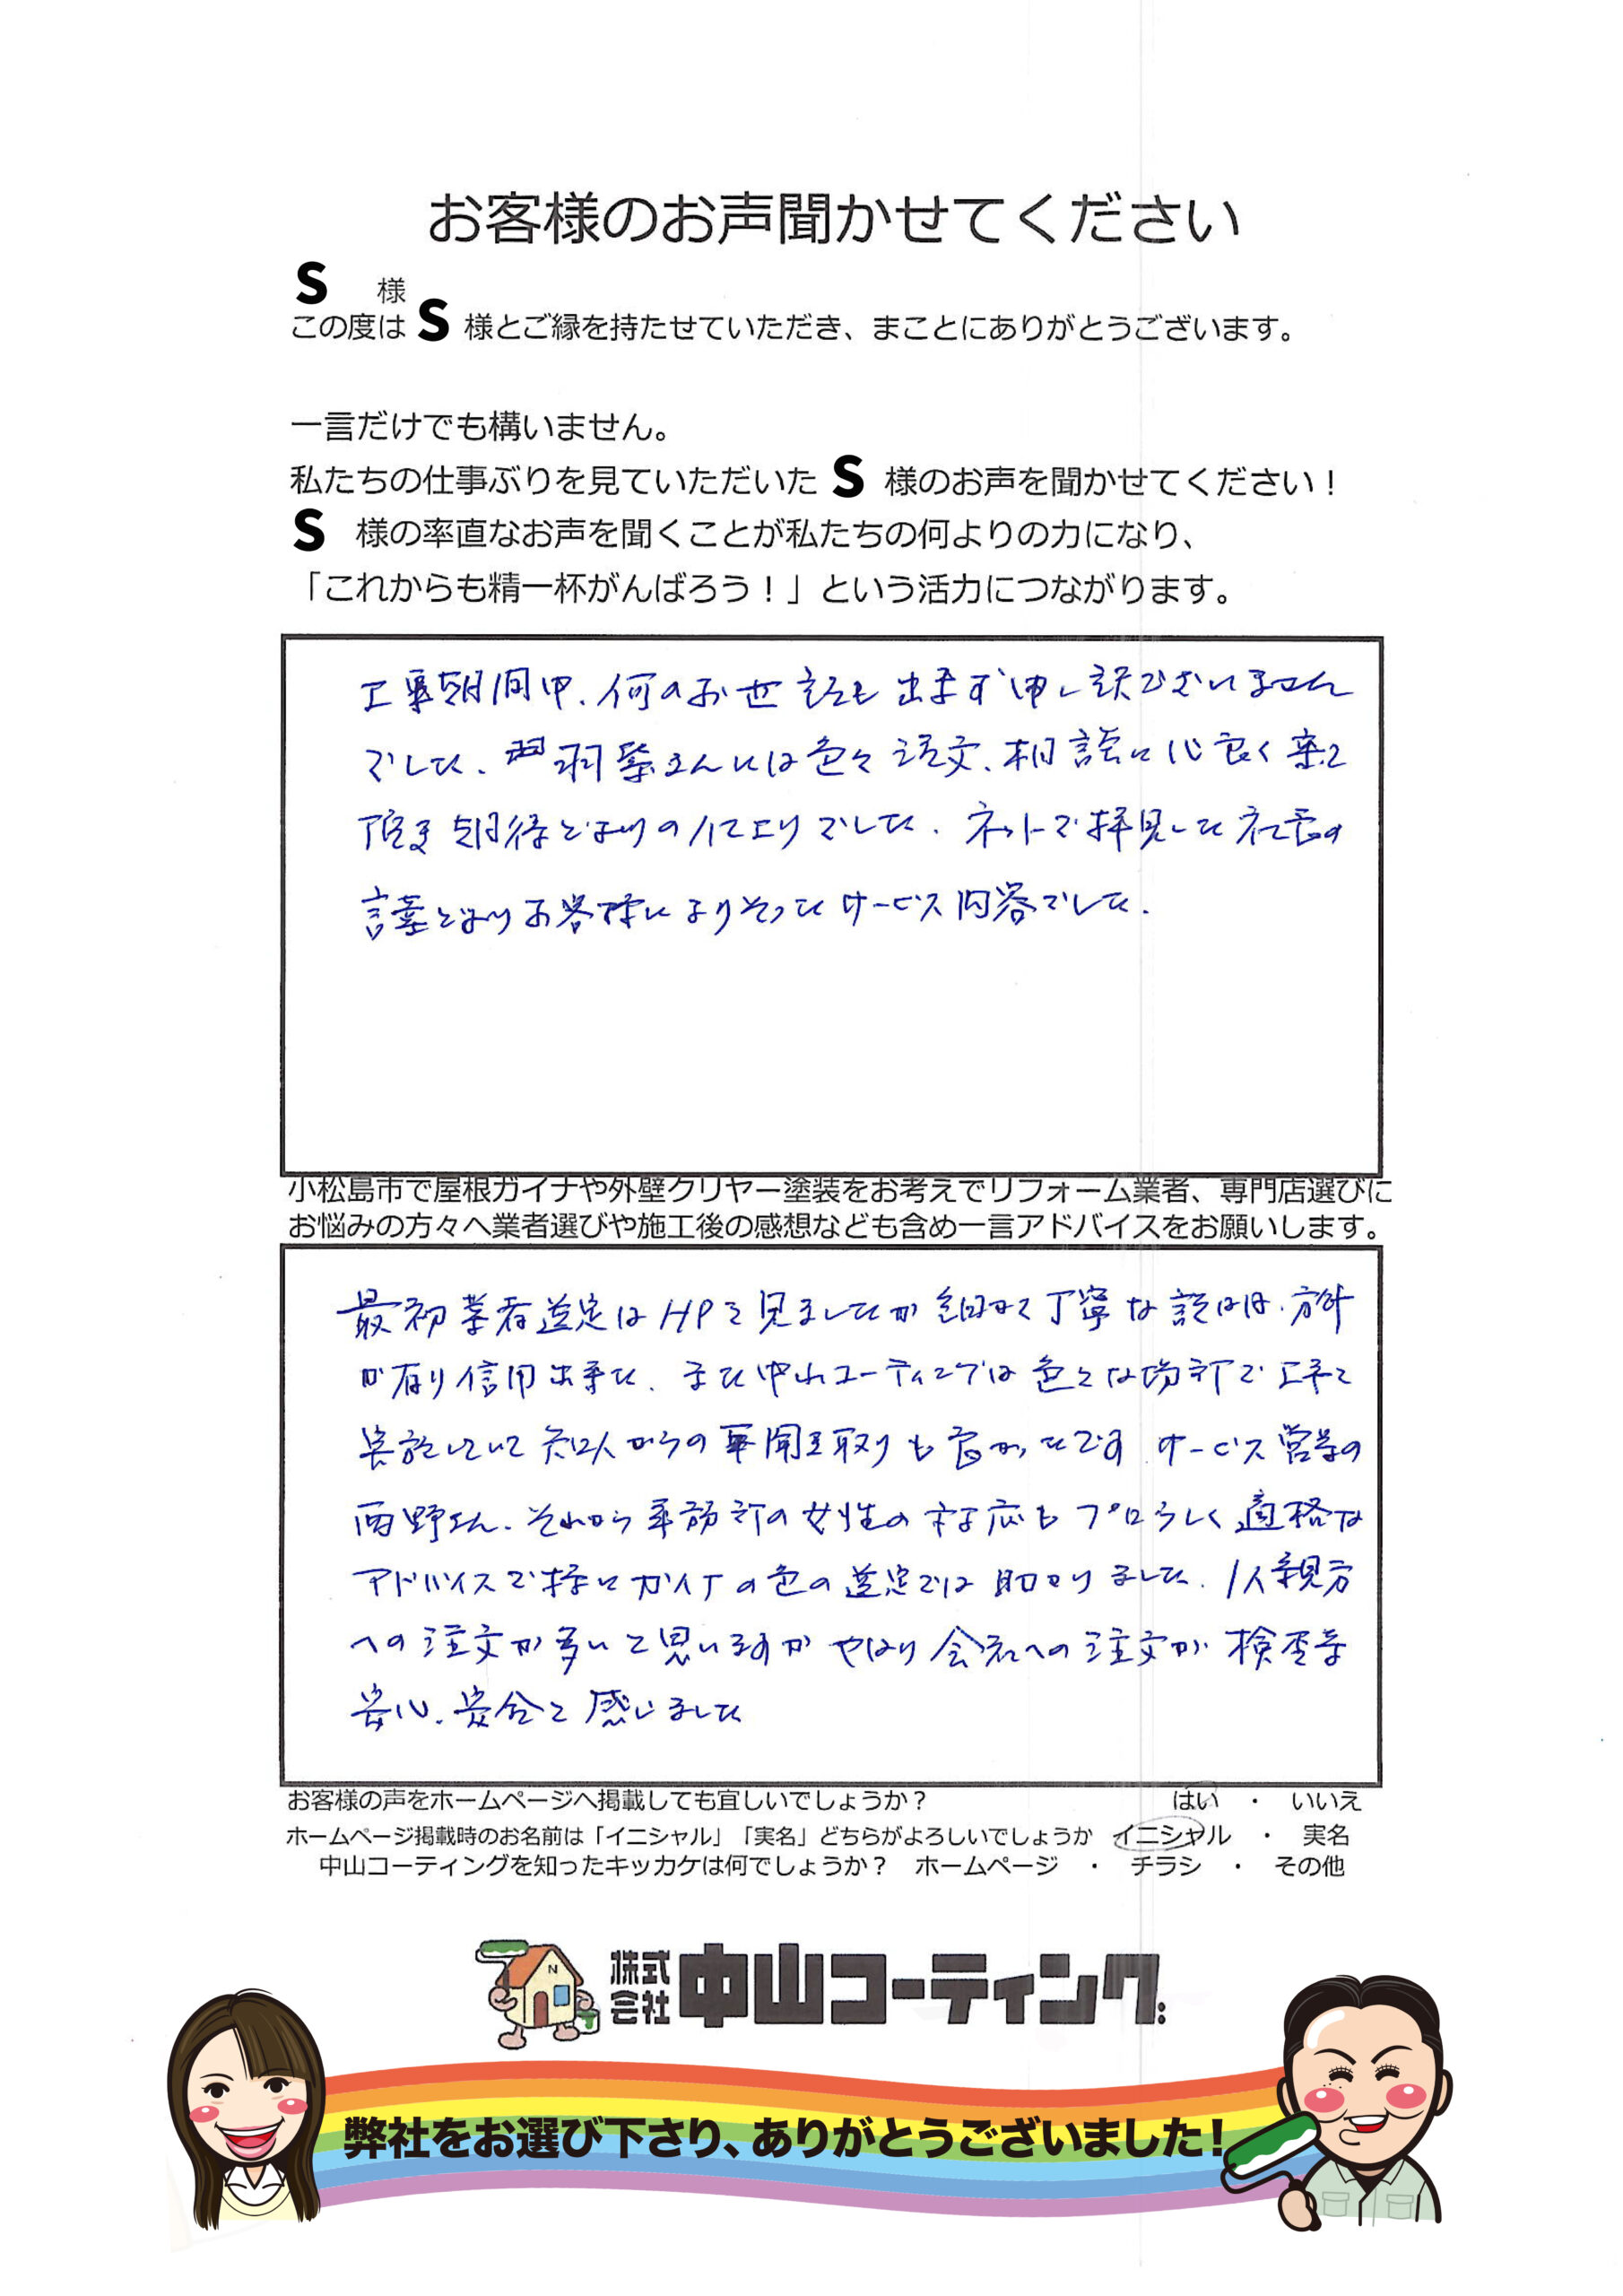 お客様のお声聞かせてください
S 様
この度は S 様とご縁を持たせていただき、まことにありがとうございます。
一言だけでも構いません。
私たちの仕事ぶりを見ていただいた S 様のお声を聞かせてください！
S 様の率直なお声を聞くことが私たちの何よりの力になり、
「これからも精一杯がんばろう！」という活力につながります。
工事期間中、何のお世話も出来ず申し訳ございません
でした、羽柴さんには色々注文、相談に心良く乗って
頂き期待どおりの仕上りでした。ネットで拝見した社長の
言葉どおりお客様によりそったサービス内容でした。
小松島市で屋根ガイナや外壁クリヤー塗装をお考えでリフォーム業者、専門店選びに
お悩みの方々へ業者選びや施工後の感想なども含め一言アドバイスをお願いします。
最初業者選定はHPを見ましたが細かく丁寧な説明、方針
が有り信用出来た、また中山コーティングは色々な場所で工事を
実施していて知人からの聞き取りも良かったです サービス営業の
西野さん、それから事務所の女性の対応もプロらしく適格な
アドバイスで特にガイナの色の選定では助かりました、1人親方
への注文が多いと思いますが やはり会社への注文が 検査等
安心、安全と感じました
お客様の声をホームページへ掲載しても宜しいでしょうか？ はい ・ いいえ
ホームページ掲載時のお名前は「イニシャル」「実名」どちらがよろしいでしょうか イニシャル ・ 実名
中山コーティングを知ったキッカケは何でしょうか？ ホームページ ・ チラシ ・ その他
N 株式会社 中山コーティング
弊社をお選び下さり、ありがとうございました！